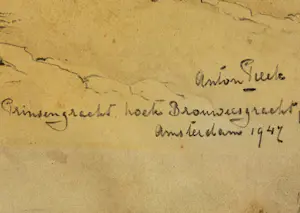 Anton Pieck
Prinsengracht hoek Brouwersgracht,
Amsterdam 1947